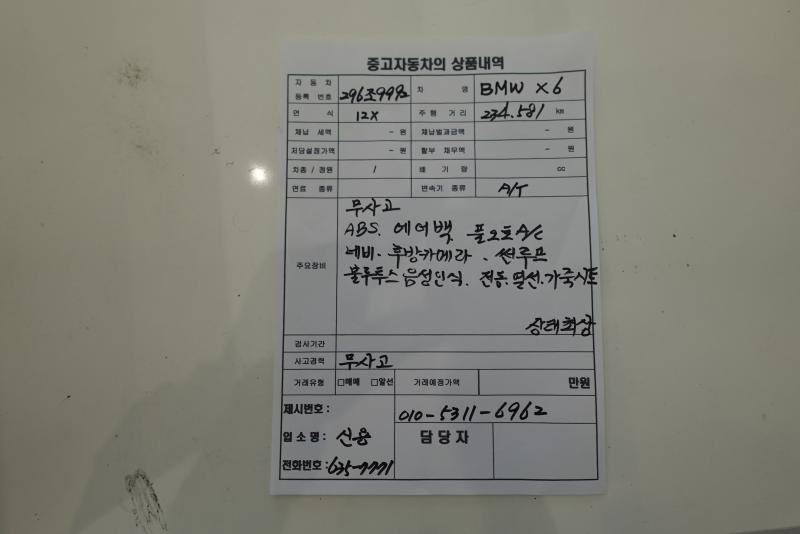 중고자동차의 상품내역
자 동 차 등록 번호 296조9992 차 명 BMW X6
연 식 12X 주 행 거 리 234.581 km
체납 세액 - 원 체납벌과금액 - 원
저당설정가액 - 원 할부 채무액 - 원
차종 / 정원 / 배 기 량 cc
연료 종류 변속기 종류 A/T
주요장비
무사고
ABS. 에어백 풀오토A/C
네비. 후방카메라. 썬루프
블루투스 음성인식. 전동.열선.가죽시트
상태최상
검사기간
사고경력 무사고
거래유형 □매매 □알선 거래예정가액 만원
제시번호 : 010-5311-6962
업 소 명 : 신용 담 당 자
전화번호 : 635-7771